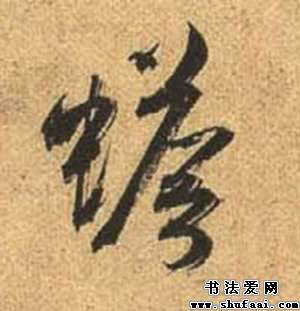 蟾
书法爱网
www.shufaai.com